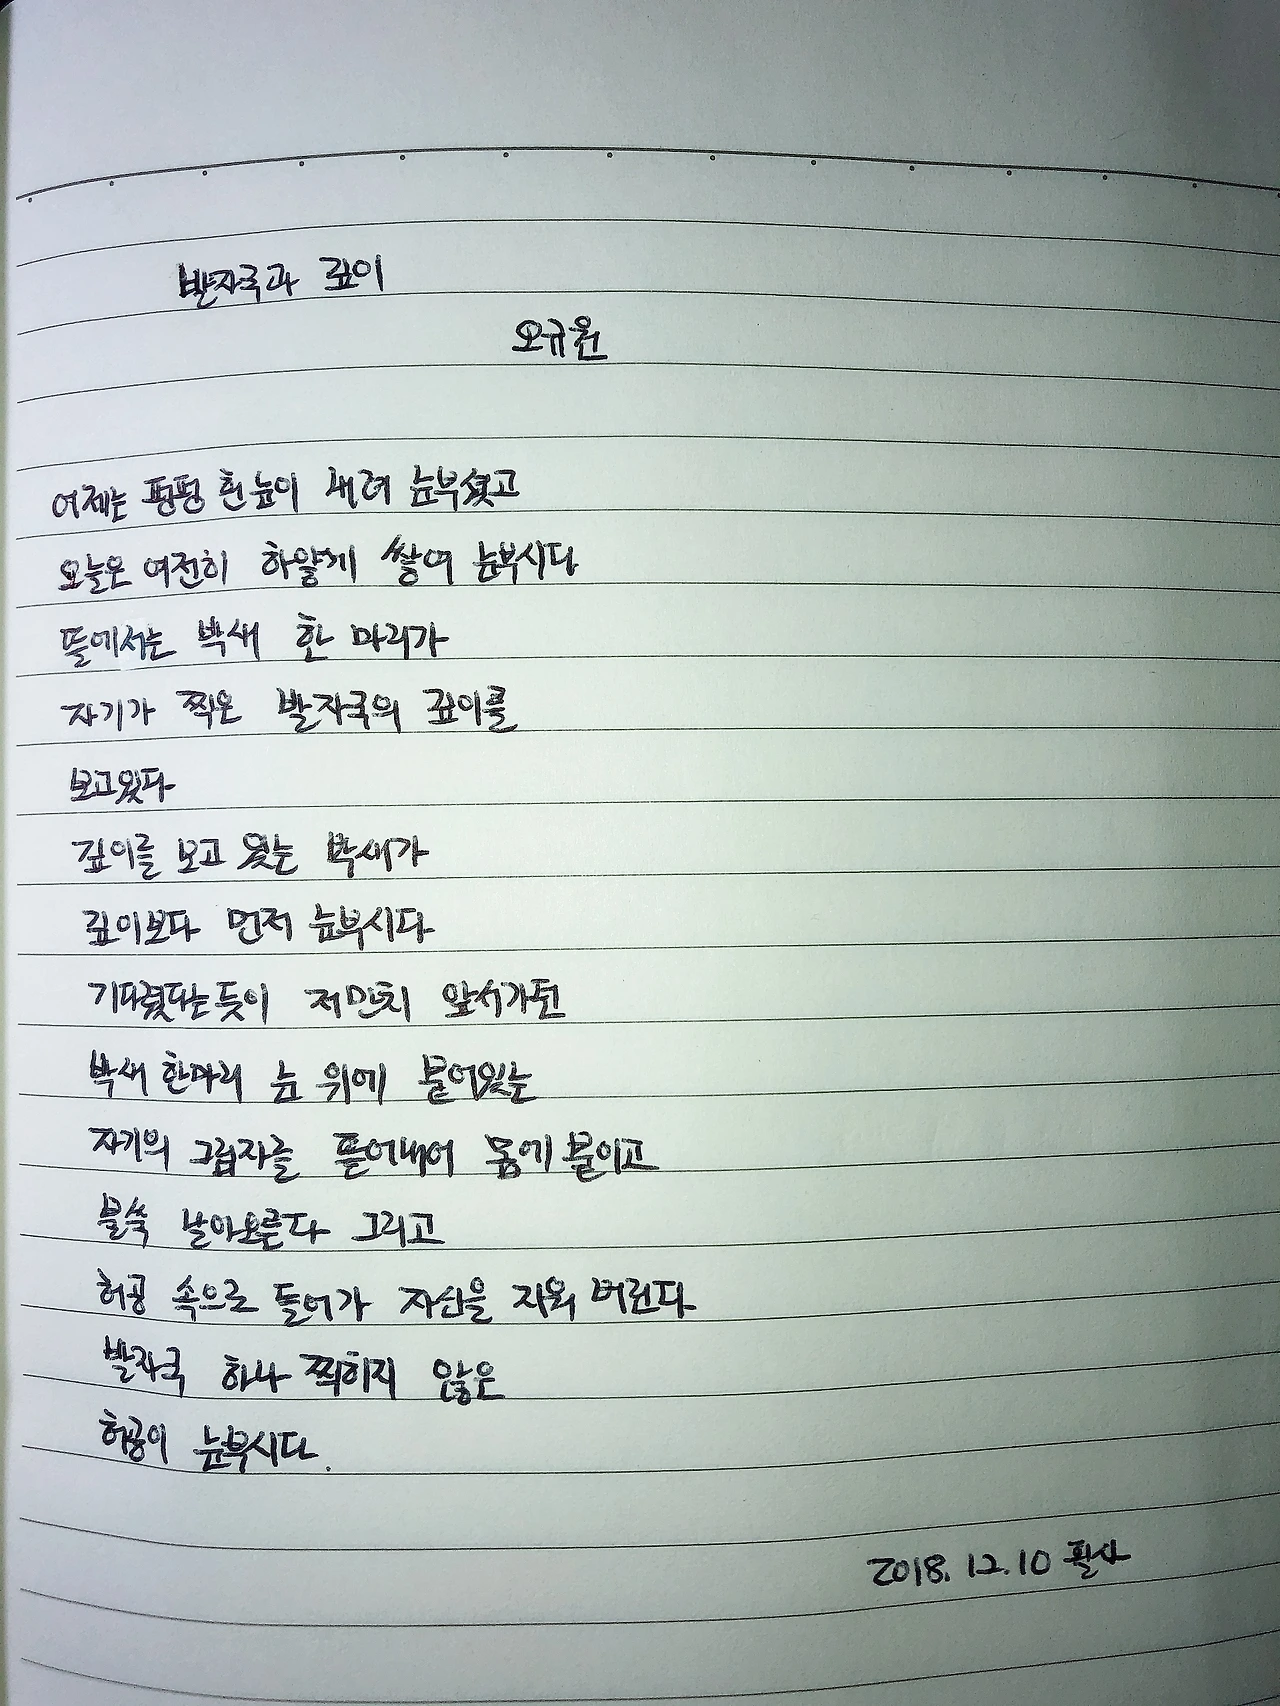 발자국과 깊이
오규원
어제는 펑펑 흰 눈이 내려 눈부셨고
오늘은 여전히 하얗게 쌓여 눈부시다
뜰에서는 박새 한 마리가
자기가 찍은 발자국의 깊이를
보고있다
깊이를 보고 있는 박새가
깊이보다 먼저 눈부시다
기다렸다는듯이 저만치 앞서가던
박새 한마리 눈 위에 붙어있는
자기의 그림자를 뜯어내어 몸에 붙이고
불쑥 날아오른다 그리고
허공 속으로 들어가 자신을 지워 버린다
발자국 하나 찍히지 않은
허공이 눈부시다.
2018. 12. 10 필사